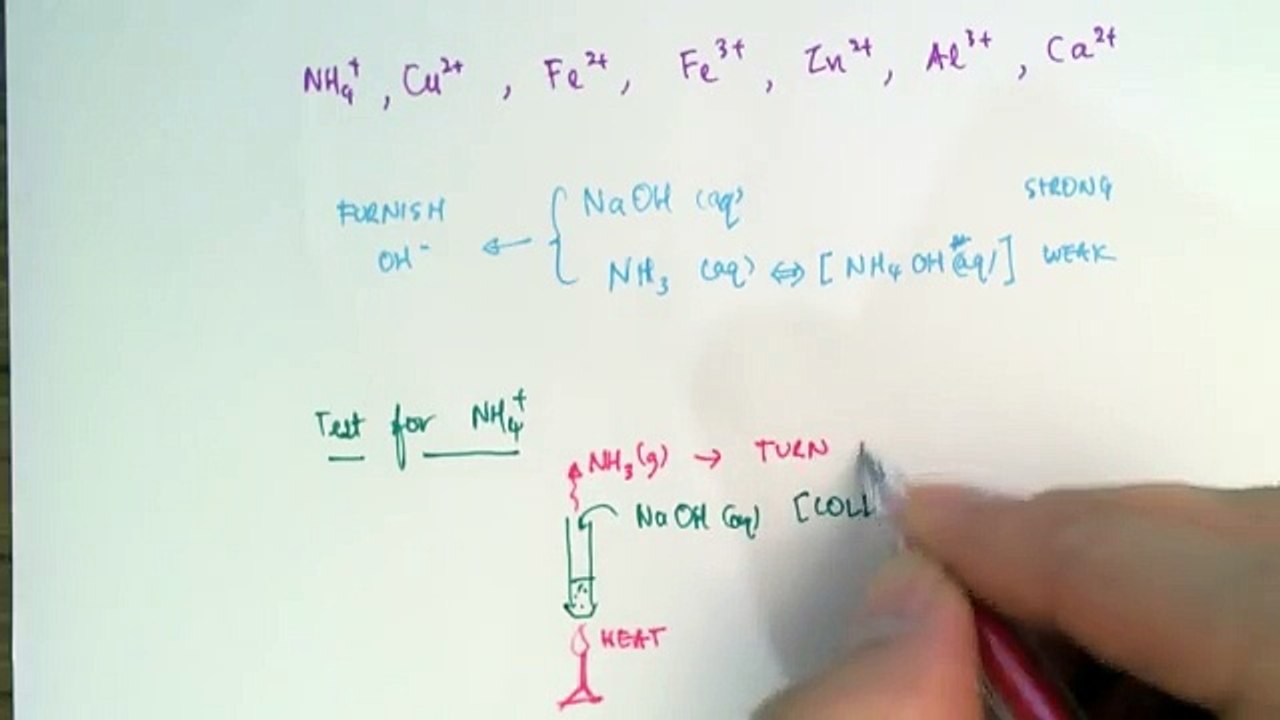 NH₄⁺, Cu²⁺, Fe²⁺, Fe³⁺, Zn²⁺, Al³⁺, Ca²⁺
FURNISH { NaOH (aq) STRONG
OH⁻ ← NH₃ (aq) ⇔ [NH₄OH (aq)] WEAK
Test for NH₄⁺
NH₃(g) → TURN
NaOH (aq) [COLL
HEAT